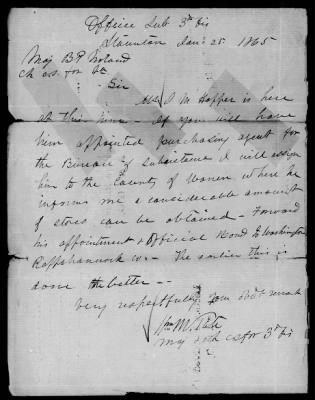 Office Sub 3d Dis
Staunton Jan'y 25 1865
Maj B P Noland
Ch cs for Va
Sir
Mr J M Hopper is here
at this time - if you will have
him appointed purchasing agent for
the Bureau of Subsistence I will assign
him to the County of Warren where he
informs me a considerable amount
of stores can be obtained - Forward
his appointment & Official Bond to Washington
Rappahannock Co - The earlier this is
done the better --
Very respectfully your obdt servt
Wm M
Maj & cs for 3d Dis